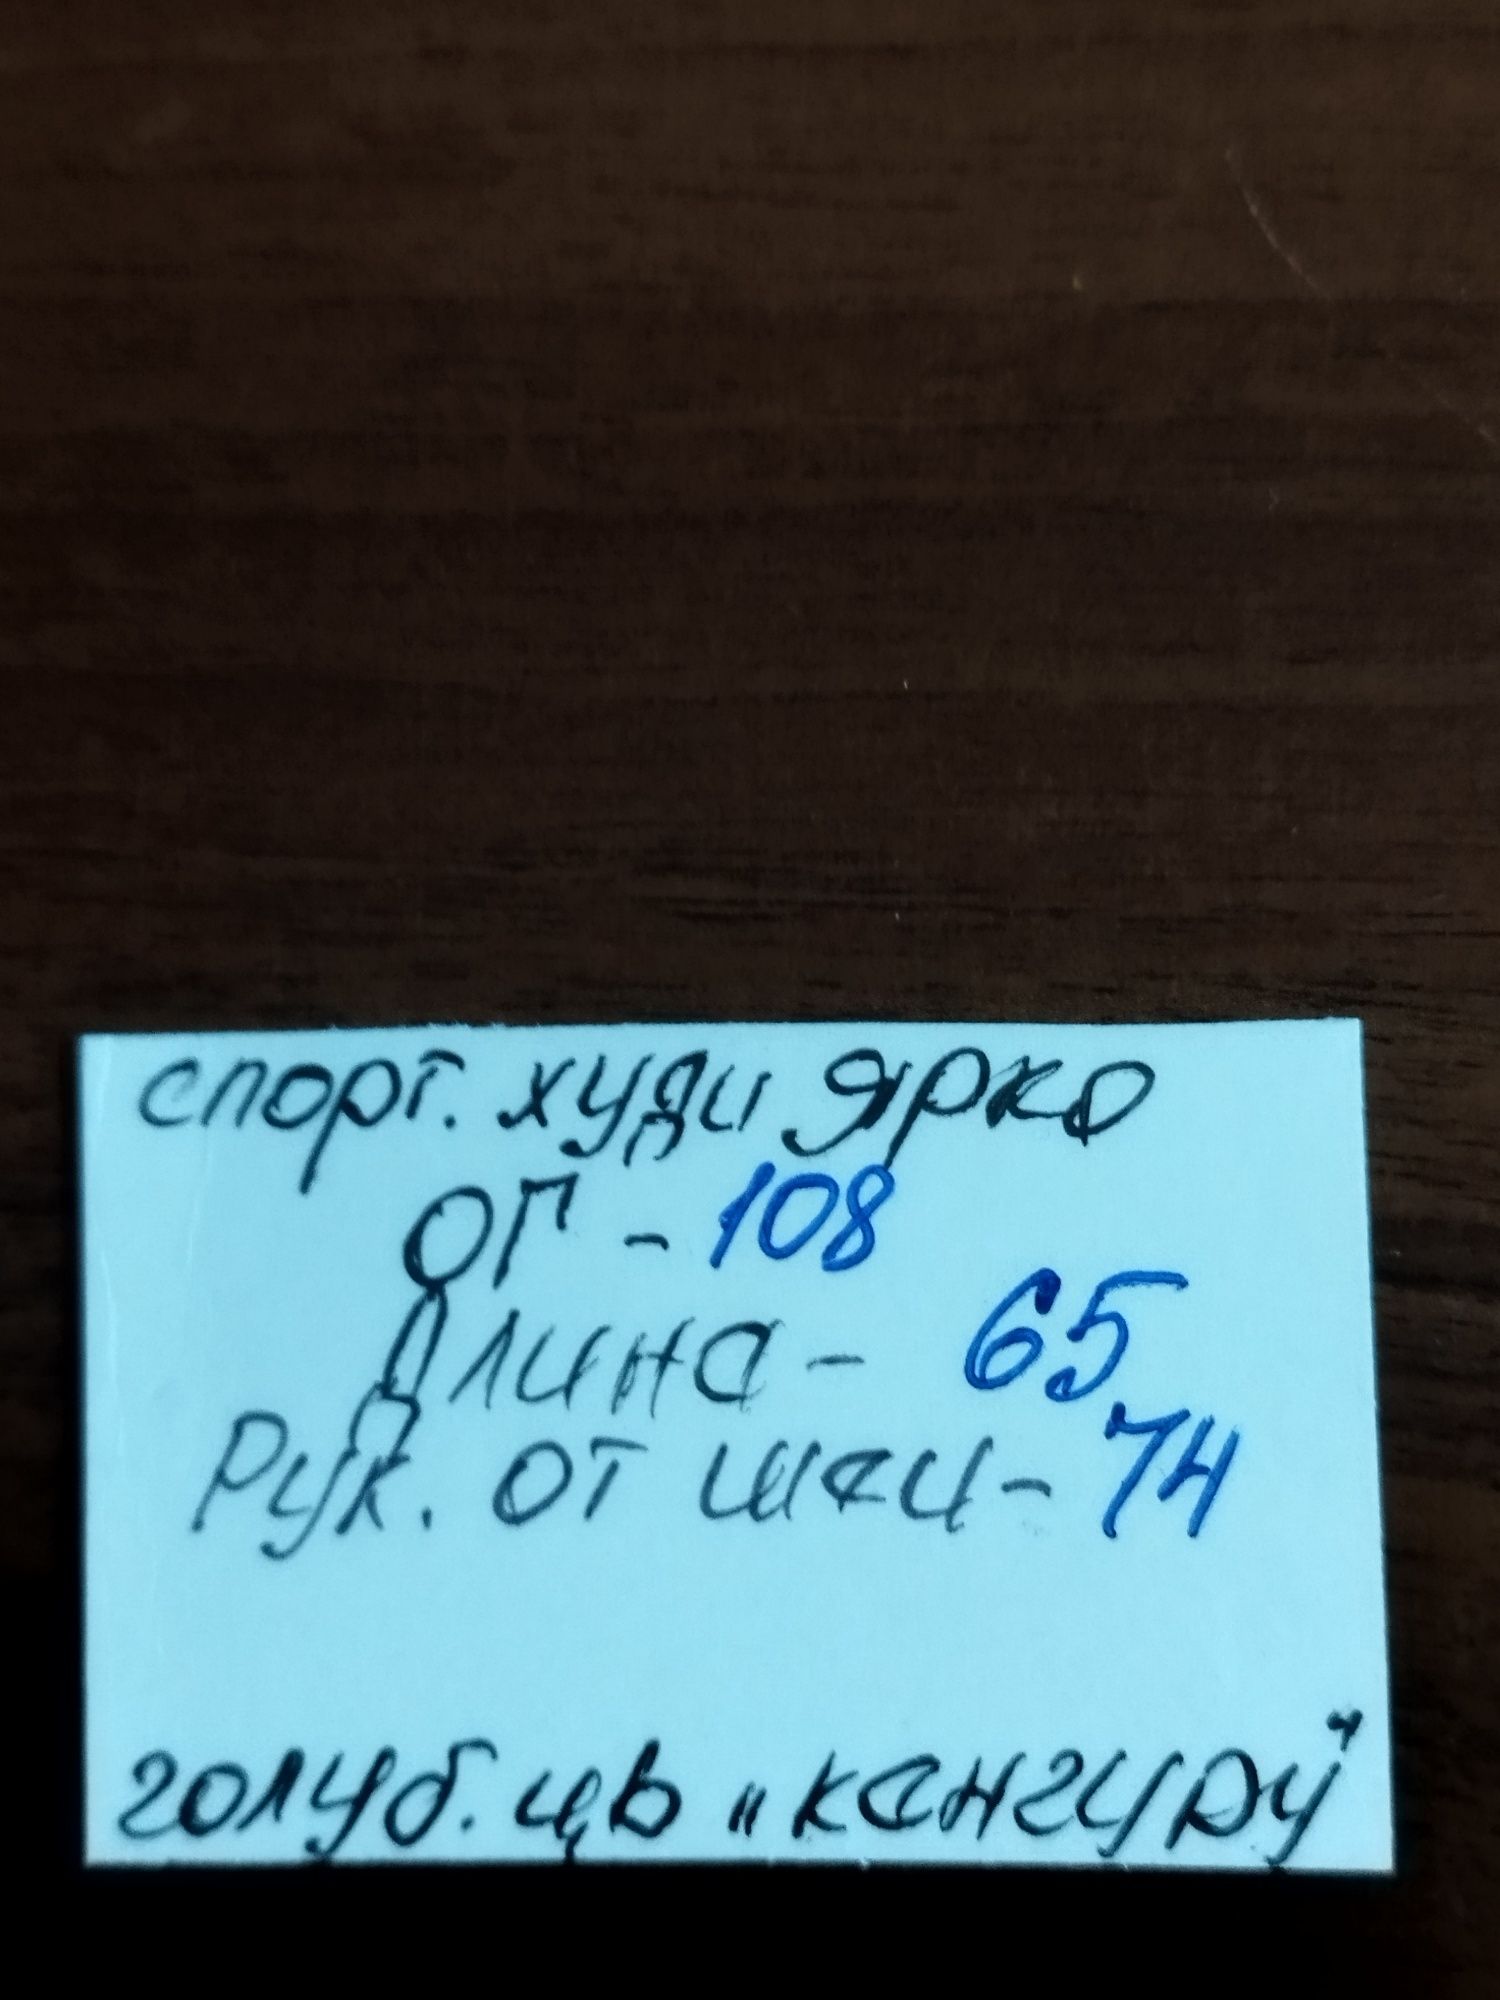 спорт. худи ярко
ОГ - 108
Длина - 65
Рук. от шеи - 74
голуб. цв "кенгуру"